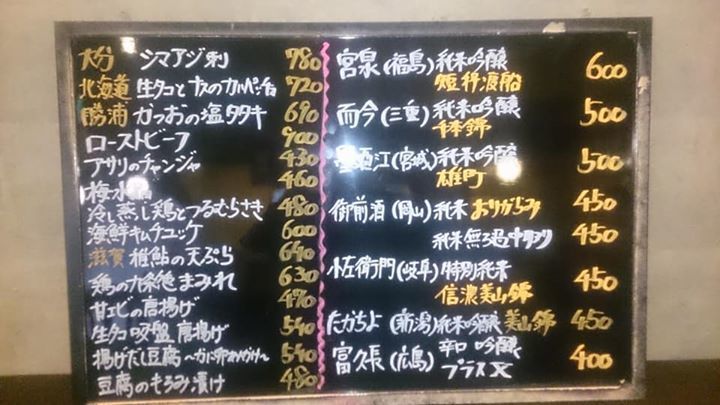 大分 シマアジ刺 980
北海道 生タコとナスのカルパッチョ 720
勝浦 かつおの塩タタキ 690
ローストビーフ 900
アサリのチャンジャ 430
梅水晶 460
冷し蒸し鶏とつるむらさき 480
海鮮キムチユッケ 600
滋賀 稚鮎の天ぷら 640
鶏の九条葱まみれ 630
甘エビの唐揚げ 490
生タコ吸盤 唐揚げ 540
揚げだし豆腐 540
豆腐のもろみ漬け 480
宮泉(福島)純米吟醸 600
短稈渡船
而今(三重)純米吟醸 500
千本錦
墨廼江(宮城)純米吟醸 500
雄町
御前酒(岡山)純米 おりがらみ 450
純米無ろ過 450
小左衛門(岐阜)特別純米 450
信濃美山錦
たかちよ(新潟)純米吟醸 美山錦 450
富久長(広島)辛口 吟醸 400
プラスX